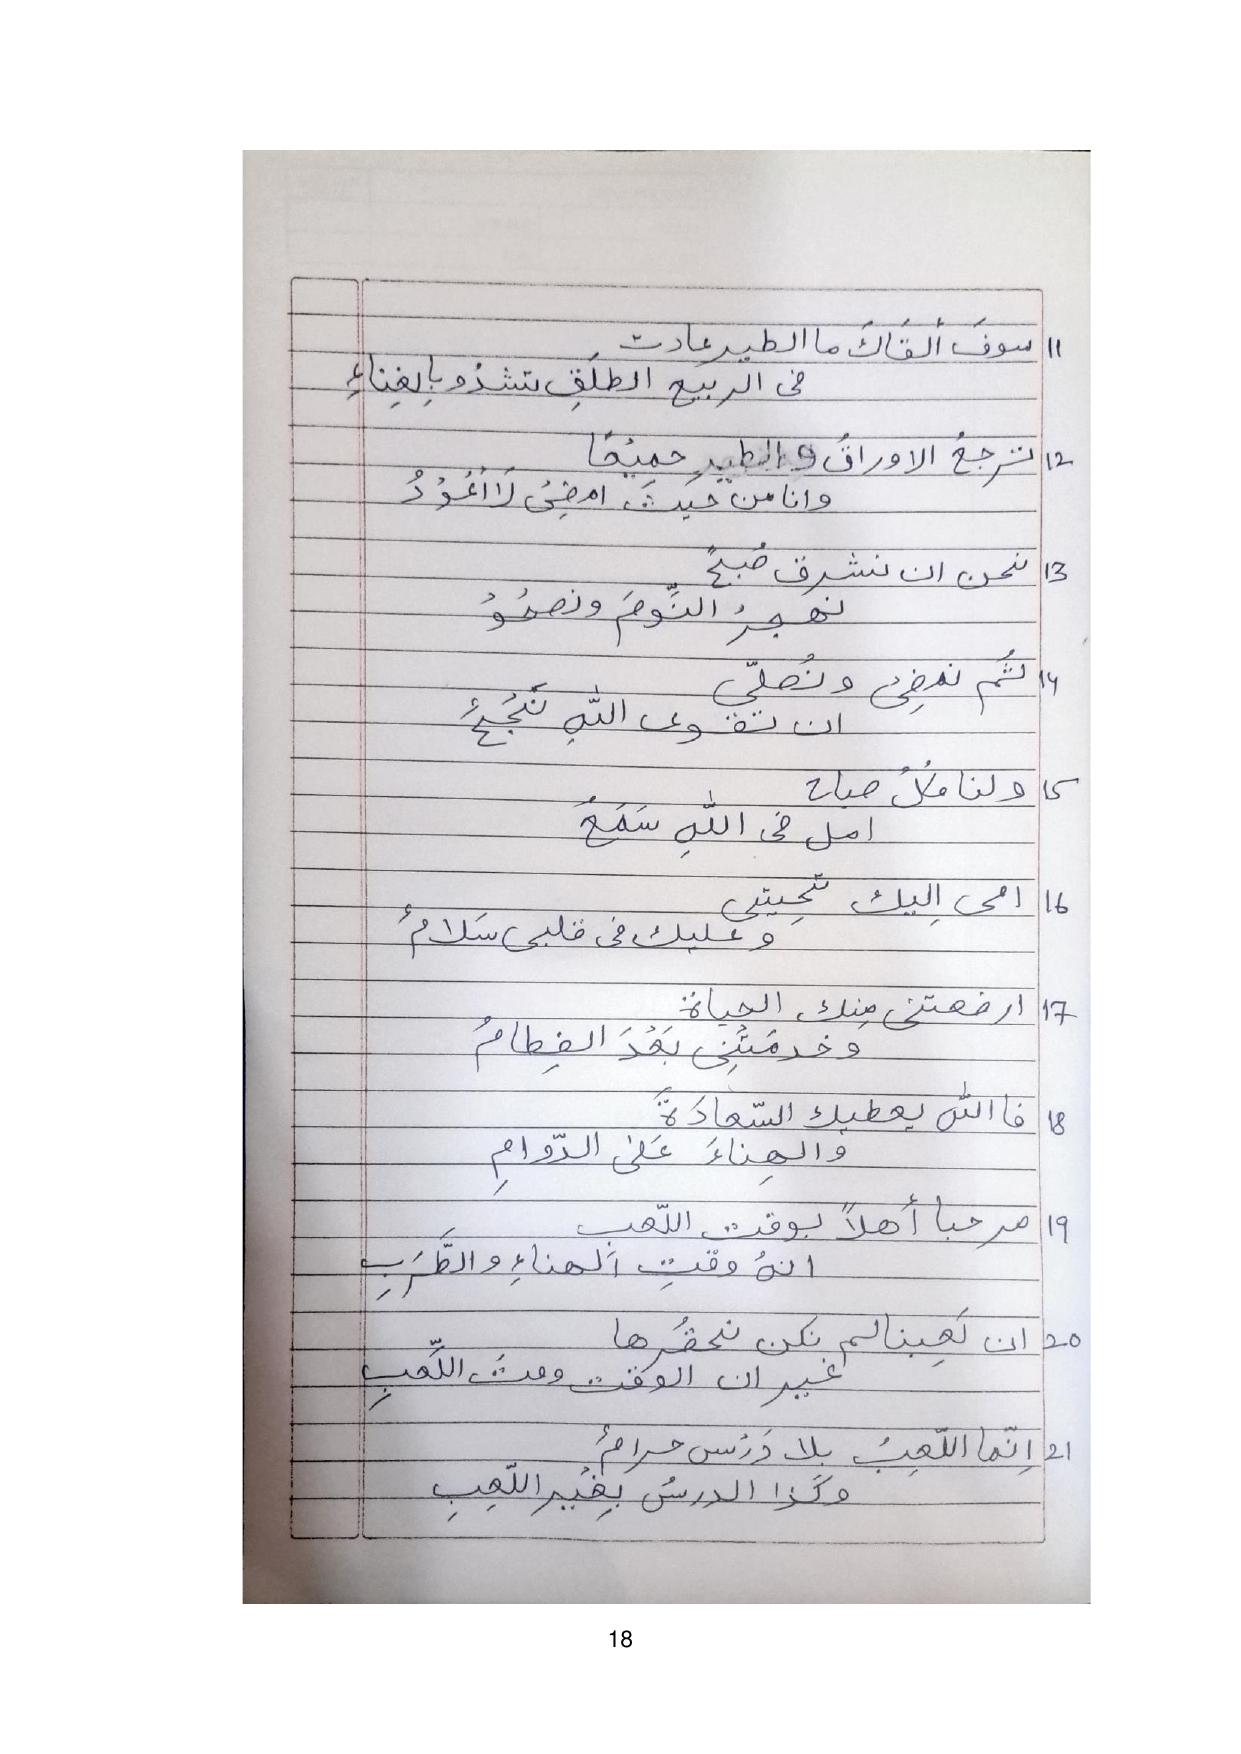 11 سوفَ ألقَاكَ ما الطير عادت
فى الربيع الطلَقِ تشدُو بِالغِناءِ
12 ترجعُ الاوراقُ و الطير جميْعًا
وانا من حَيثُ امضِىْ لَا أعُوْدُ
13 نحن ان نشرق صُبحً
نهجرُ النَّومَ ونصحُوْ
14 ثُم نمضِىْ ونُصلّى
ان تقوى اللهِ نُجْحٌ
15 ولنا كلُ صباح
امل فى اللهِ سَمَحٌ
16 امى اِليك تحِيتى
وعليك فى قلبى سَلامُ
17 ارضعتنى مِنك الحياة
وخدمَتْنِى بَعْدَ الفِطامُ
18 فاالله يعطيك السّعادَةَ
والهِناءَ عَلىٰ الدّوامِ
19 مرحبا أهلاً بوقت اللّعب
انهُ وقتِ اَلهناءِ والطَّرَبِ
20 ان لَعِبنا لم نكن نحقُرها
غير ان الوقت وقتُ اللَّعبِ
21 اِنّما اللّعِبُ بلا دَرْس حرامُ
وكَذا الدرسُ بِغَيْرِ اللّعِبِ
18